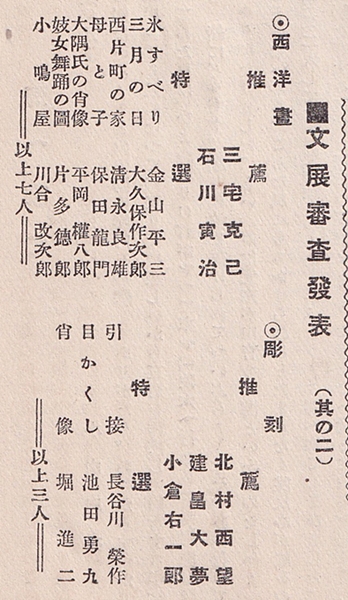 ■文展審査發表（其の二）
◉西洋畫
推薦
三宅克己
石川寅治
特選
氷すべり 金山平三
三月の日 大久保作次郎
西片町の家 清永良雄
母と子 保田龍門
大隅氏の肖像 平岡權八郎
妓女舞踊の圖 片多德郎
小鳴屋 川合改次郎
＝＝以上七人＝＝
◉彫刻
推薦
北村西望
建畠大夢
小倉右一郎
特選
引接 長谷川榮作
目かくし 池田勇九
肖像 堀進二
＝＝以上三人＝＝